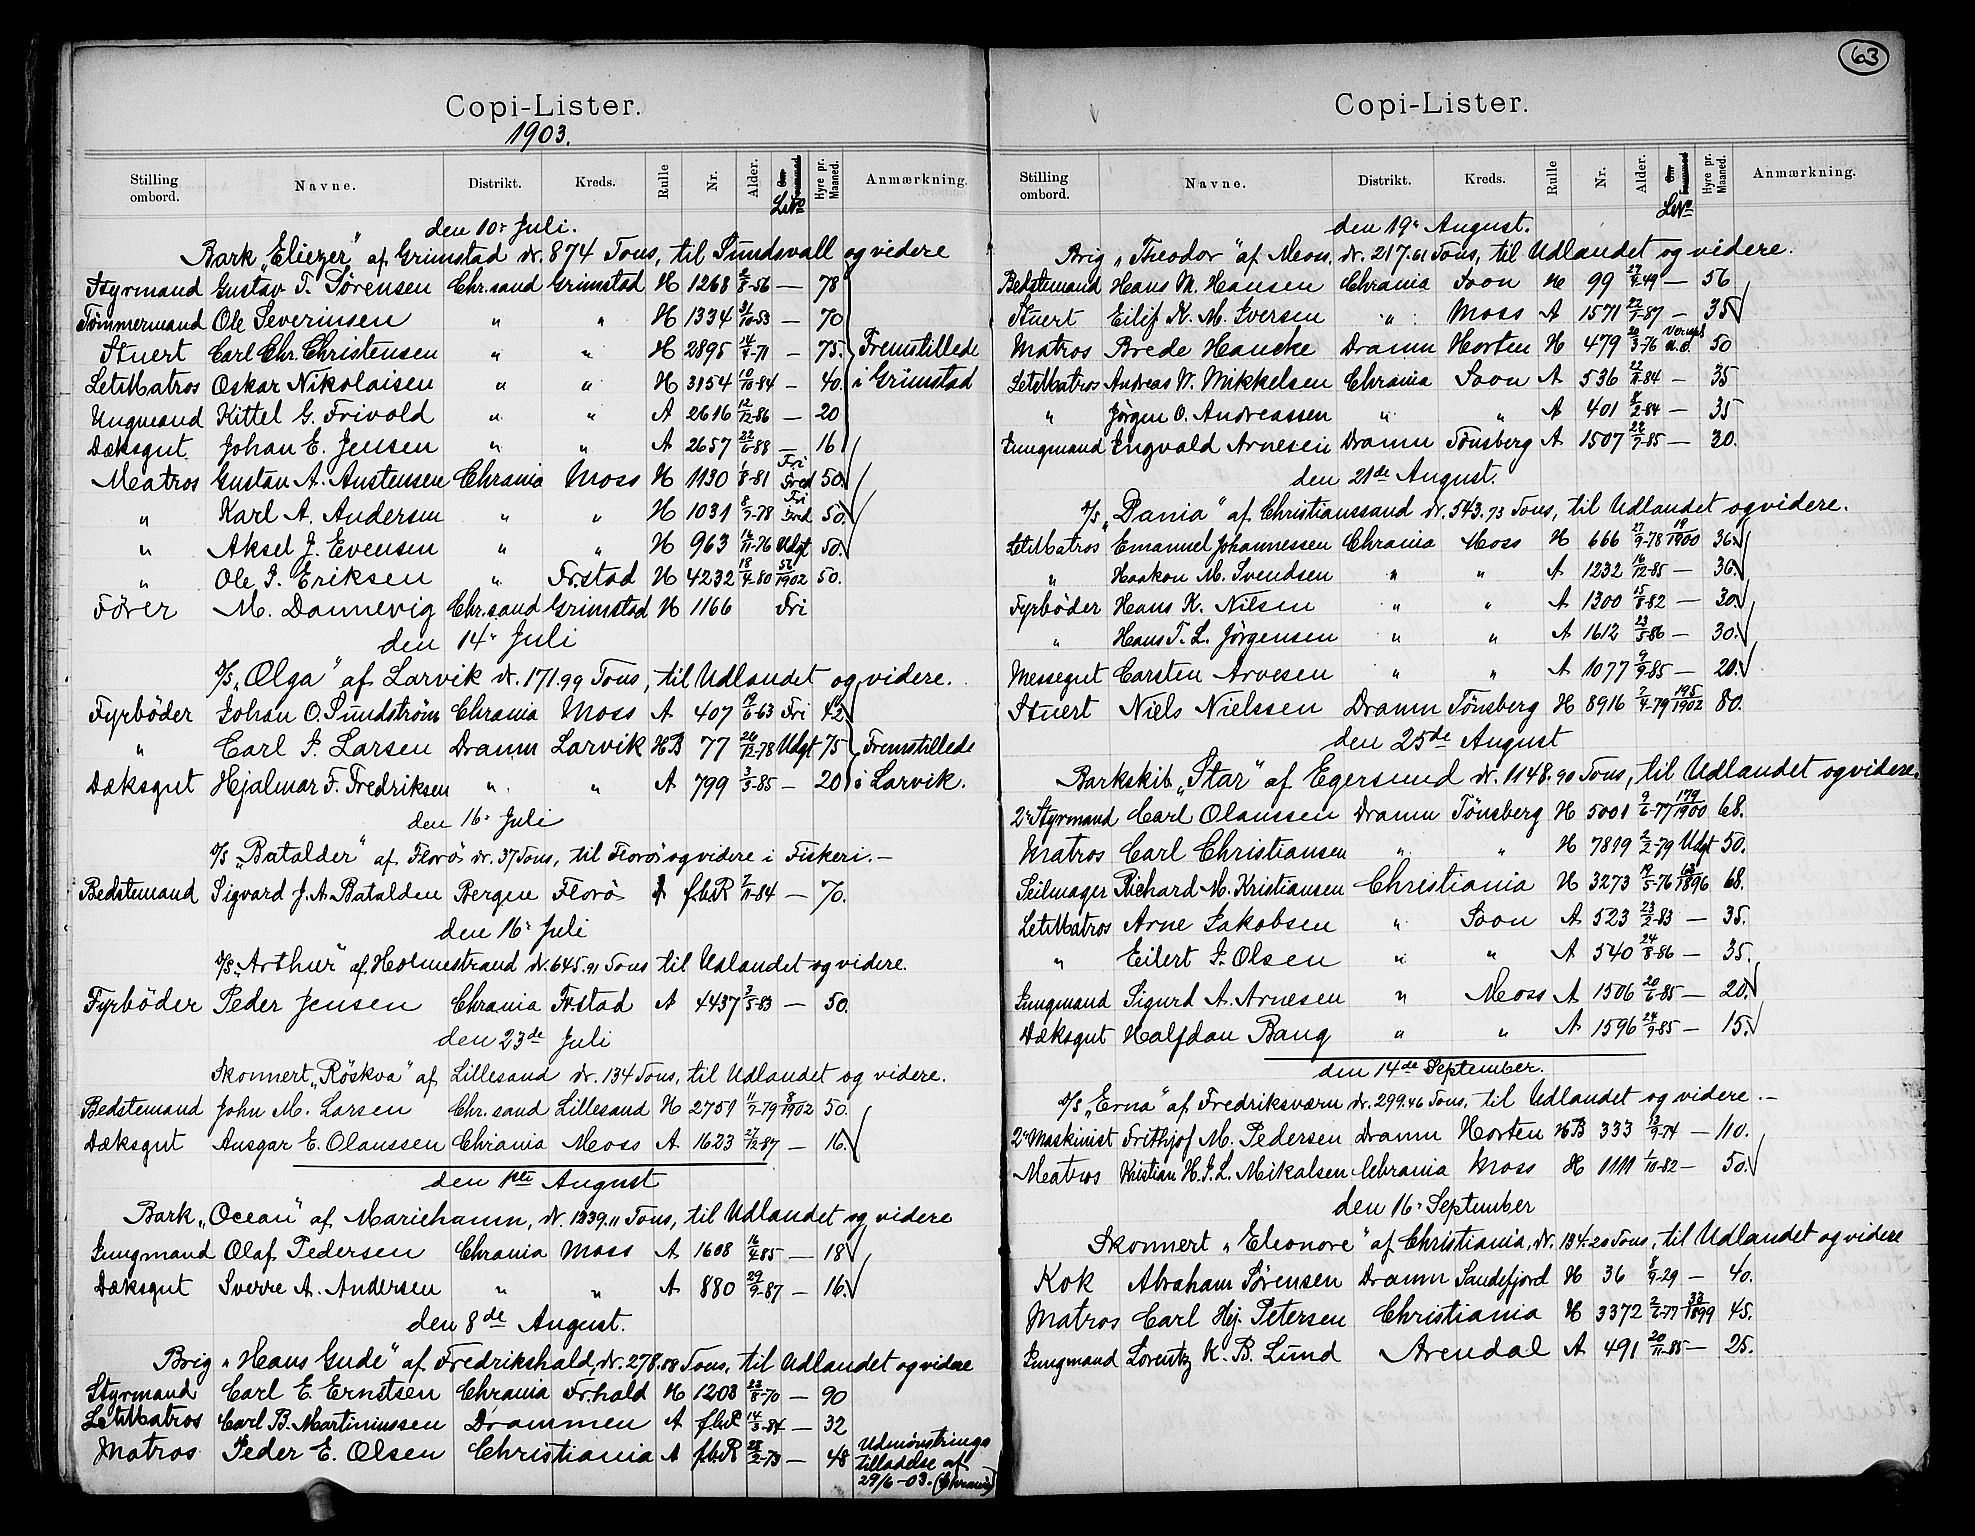 Copi-Lister.
1903.
Stilling ombord. Navne. Distrikt. Kreds. Rulle Nr. Alder. LNo Hyre pr. Maaned. Anmærkning.
den 10' Juli.
Bark „Eliezer" af Grimstad dr. 874 Tons, til Sundsvall og videre
Styrmand Gustav T. Sørensen Chr.sand Grimstad H 1268 — 78
Tømmermand Ole Severinsen " " H 1334 31/10-53 — 70
Stuert Carl Chr. Christensen " " H 2895 — 75. Fremstillede
LetMatros Oskar Nikolaisen " " H 3154 10/10-84 — 40. i Grimstad
Ungmand Kittel G. Frivold " " A 2616 12/12-86 — 20
Dæksgut Johan E. Jensen " " A 2657 22/6-88 — 16
Matros Gustav A. Austensen Chrania Moss H 1130 1/8-81 Fri Fred 50.
" Karl A. Andersen " " H 1031 8/7-78 Fri Fred 50.
" Aksel J. Evensen " " H 963 16/11-76 Udgt 50.
" Ole J. Eriksen " Fr.stad H 4232 18/4-80 56/1902 50.
Fører M. Dannevig Chr.sand Grimstad H 1166 Fri
den 14' Juli
D/S „Olga" af Larvik dr. 171.99 Tons, til Udlandet og videre.
Fyrbøder Johan O. Sundstrøm Chrania Moss A 407 19/6-63 Fri 42.
" Carl J. Larsen Dramn Larvik HB 77 26/12-78 Udgt 75 Fremstillede
Dæksgut Hjalmar F. Fredriksen " " A 799 3/3-85 — 20 i Larvik.
den 16' Juli
D/S „Batalder" af Florö dr. 37 Tons, til Florö og videre i Fiskeri.—
Bedstemand Sigvard J. A. Batalden Bergen Florö f.b.R 7/11-84 — 70.
den 16' Juli
D/S „Arthur" af Holmestrand dr. 645.91 Tons til Udlandet og videre.
Fyrbøder Peder Jensen Chrania Fr.stad A 4437 3/5-83 — 50.
den 23de Juli
Skonnert „Röskva" af Lillesand dr. 134 Tons, til Udlandet og videre.
Bedstemand John M. Larsen Chr.sand Lillesand H 2751 11/7-79 8/1902 50.
Dæksgut Ansgar E. Olaussen Chrania Moss A 1623 27/12-87 — 16.
den 1ste August
Bark „Ocean" af Mariehamn, dr. 1239.11 Tons, til Udlandet og videre
Jungmand Olaf Pedersen Chrania Moss A 1608 16/4-85 — 18
Dæksgut Sverre A. Andersen " " A 880 29/9-87 — 16.
den 8de August.
Brig „Hans Gude" af Fredrikshald, dr. 278.08 Tons, til Udlandet og videre
Styrmand Carl E. Ernstsen Chrania Fr.hald H 1203 23/8-70 — 90
LetMatros Carl B. Martiniussen Drammen A f.b.R 14/3-84 — 32
Matros Peder E. Olsen Christiania A f.b.R 28/2-73 — 48 Udmønstrings
tilladelse af
29/6-03. (Chrania)
63
Copi-Lister.
Stilling ombord. Navne. Distrikt. Kreds. Rulle Nr. Alder. LNo Hyre pr. Maaned. Anmærkning.
den 19' August.
Brig „Theodor" af Moss, dr. 217.61 Tons, til Udlandet og videre.
Bedstemand Hans M. Hansen Chrania Soon H 99 — 56
Stuert Eilif K. M. Iversen " Moss A 1571 22/7-87 — 35
Matros Brede Hancke Dramn Horten H 479 20/3-76 50
LetMatros Andreas W. Mikkelsen Chrania Soon A 536 — 35
" Jørgen O. Andreassen " " A 401 8/2-84 — 35
Jungmand Engvald Arnesen Dramn Tönsberg A 1507 — 30.
den 21de August.
D/S „Dania" af Christianssand dr. 543.73 Tons, til Udlandet og videre.
LetMatros Emanuel Johannessen Chrania Moss H 666 27/9-78 19/1900 36
" Haakon M. Svendsen " " A 1232 16/12-85 — 36.
Fyrbøder Hans K. Nilsen " " A 1300 15/8-82 — 30.
" Hans T. L. Jörgensen " " A 1612 23/5-86 — 30.
Messegut Carsten Arvesen " " A 1077 9/9-85 — 20.
Stuert Niels Nielssen Dramn Tönsberg H 8916 195/1902 80.
den 25de August
Barkskib „Star" af Egersund dr. 1148.90 Tons, til Udlandet og videre.
2' Styrmand Carl Olaussen Dramn Tönsberg H 5001 9/6-77 179/1900 68.
Matros Carl Christiansen " " H 7819 2/2-79 Udgt 50.
Seilmager Richard M. Kristiansen Christiania H 3273 19/5-76 68.
LetMatros Arne Jakobsen " Soon A 523 23/2-83 — 35.
" Eilert J. Olsen " " A 540 24/8-86 — 35.
Jungmand Sigurd A. Arnesen " Moss A 1506 20/6-85 — 20.
Dæksgut Halfdan Bang " " A 1596 24/9-85 — 15.
den 14de September.
D/S „Erna" af Fredriksværn dr. 299.46 Tons, til Udlandet og videre.—
2' Maskinist Frithjof M. Pedersen Dramn Horten HB 333 13/9-74 — 110.
Matros Kristian H. J. L. Mikalsen Chrania Moss H 1111 1/10-82 — 50.
den 16' September
Skonnert „Eleonore" af Christiania, dr. 134.20 Tons, til Udlandet og videre
Kok Abraham Sörensen Dramn Sandefjord H 36 — 40.
Matros Carl Hj. Petersen Christiania H 3372 33/1899 45.
Jungmand Lorentz K. B. Lund Arendal A 491 20/11-85 — 25.